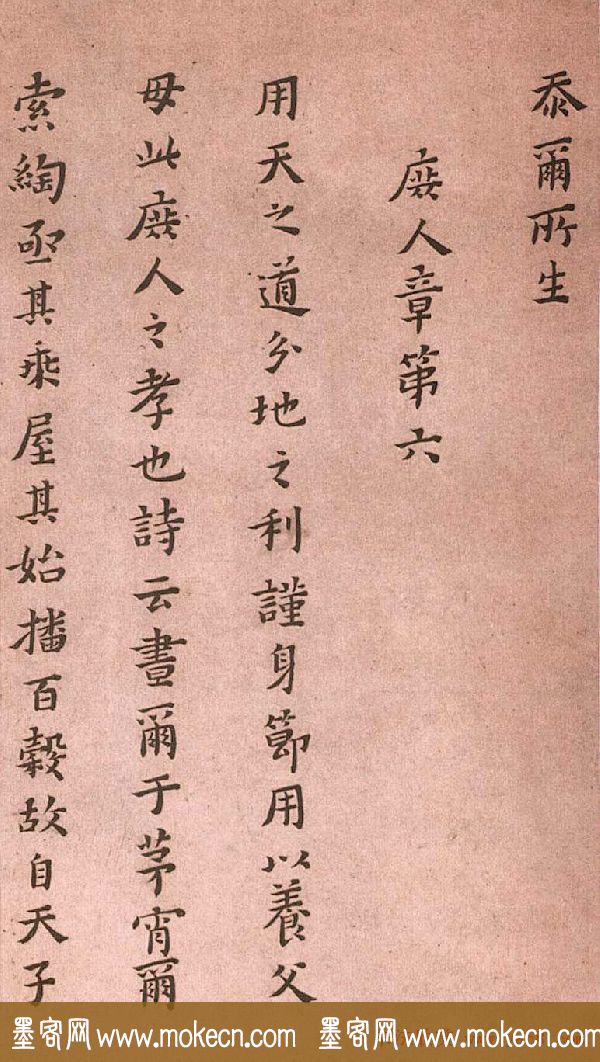 忝爾所生
庶人章第六
用天之道分地之利謹身節用以養父
母此庶人之孝也詩云晝爾于茅宵爾
索綯亟其乘屋其始播百穀故自天子
墨客网 www.mokecn.com 墨客网 www.mokecn.com